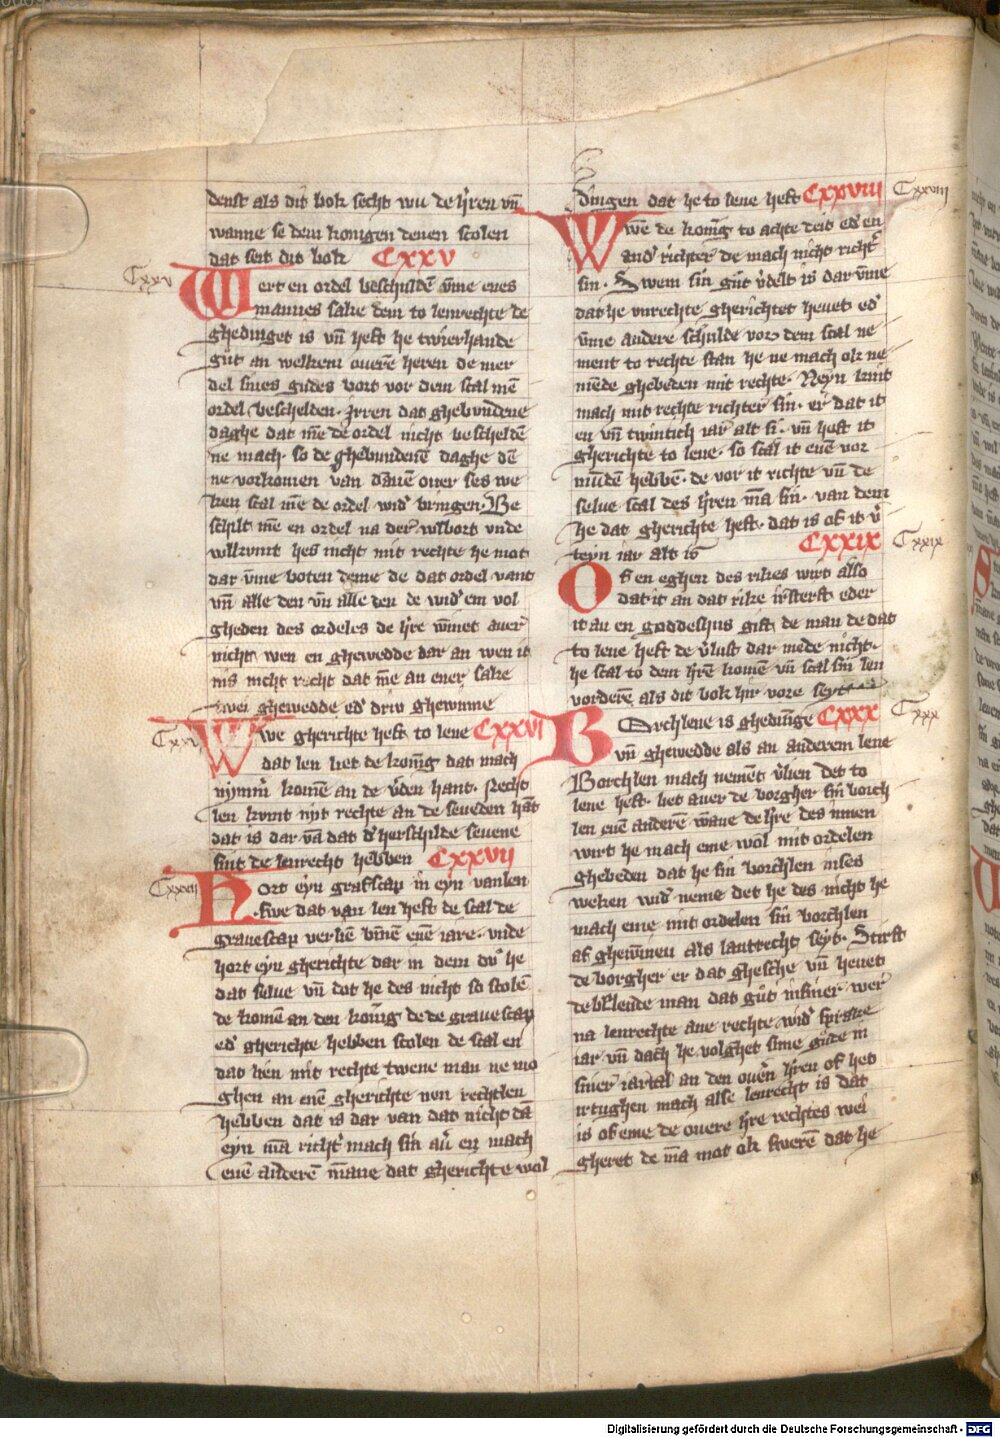 denst als dit bok secht wu de h̄ren vn̄
wanne se dem konigen denen scolen
dat seit dit bok CXXV
Cxxv
Wert en ordel beschuldē vm̄e enes
mannes sake dem to lenrechte de
ghedinget is vn̄ heft he twierhande
gůt an welkem ouerē heren de mer
del sines gudes vort vor dem scal mē
ordel beschelden. Irren dat ghebundene
daghe dat mē de ordel nicht bescheldē
ne mach. so de ghebundenē daghe dē
ne vorkomen van dānē ouer ses we
ken scal mē de ordel wid' bringen. Be
schilt mē en ordel na der wlbort vnde
wllkumt hes nicht mit rechte he mot
dar vm̄e boten deme de dat ordel vant
vn̄ alle den vn̄ alle den de wid' em vol
gheden des ordeles de h̄re wīnet auer
nicht wen en ghewedde dar an wen it
nis nicht recht dat mē an ener sake
twei ghewedde ed' driv ghewinne
Cxxvi
We gherichte heft to lene CXXVI
dat len liet de konīg dat mach
nymm̄ komē an de v̄den hant. Recht
len kvmt mit rechte an de seueden hāt
dat is dar vā dat d' herschilde seuene
sint de lenrecht hebben CXXVII
Cxxvii
Hort eyn grafscap in eyn vanlen
Swe dat van len heft de scal de
grauescap verliē bīnē enē iare. vnde
hort eyn gherichte dar in dem du' he
dat selue vn̄ dot he des nicht so scolē
de komē an den konīg de de grauescap
ed' gherichte hebben scolen de scal en
dat liēn mit rechte twene man ne mo
ghen an enē gherichte nen rechtlen
hebben dat is dar van dat nicht dā
eyn mā richt' mach sin au' en mach
enē anderē māne dat gherichte wol
dingen dat he to lene heft CXXVIII
Cxxviii
Wē de konīg to achte deit ed' en
and' richter de mach nicht richt'
sin. Swem sin gůt v'delt is dar vm̄e
dat he vnrechte gherichtet heuet ed'
vm̄e andere schulde vor dem scal ne
ment to rechte stan he ne mach ok ne
mēde ghebeden mit rechte. Neyn kint
mach mit rechte richter sin. er dat it
en vn̄ twintich iar alt si. vn̄ heft it
gherichte to lene. so scal it enē vor
mūdē hebbē. de vor it richte vn̄ de
selue scal des h̄ren mā sin. van dem
he dat gherichte heft. dat is of it v'
teyn iar alt is CXXIX
Cxxix
Of en eghen des rikes wirt also
dat it an dat rike irsterft eder
it an en goddeshus gift de man de dat
to lene heft de v'lust dar mede nicht.
he scal to dem h̄rē komē vn̄ scal sin len
vorderē als dit bok hir vore seyt
Cxxx
Borchlene is ghedinge CXXX
vn̄ ghewedde als an anderem lene
Borchlen mach nemēt v'lien det to
lene heft. let auer de borgher sin borch
len enē anderē wane de h̄re des innen
wirt he mach eme wol mit ordelen
ghebeden dat he sin borchlen in ses
weken wid' neme det he des nicht he
mach eme mit ordelen sin borchlen
af ghewinen als lantrecht seyt. Stirft
de borgher er dat ghesche vn̄ heuet
de beleende man dat gůt in siner wer'
na lenrechte ane rechte wid' sprake
iar vn̄ dach he volghet sime gůde in
siner iartal an den ouer'n h̄ren of het
irtughen mach alse lenrecht is dat
is of eme de ouere h̄re rechtes wei
gheret de mā mot ok swerē dat he